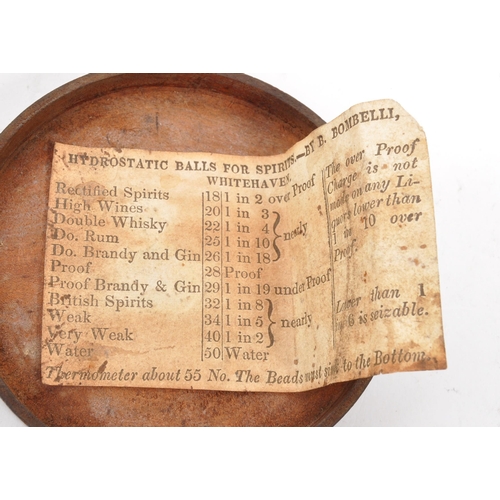 HYDROSTATIC BALLS FOR SPIRITS.—BY B. BOMBELLI,
WHITEHAVEN
Rectified Spirits 18 1 in 2 over Proof
High Wines 20 1 in 3
Double Whisky 22 1 in 4
Do. Rum 25 1 in 10
Do. Brandy and Gin 26 1 in 18
nearly
Proof 28 Proof
Proof Brandy & Gin 29 1 in 19 under Proof
British Spirits 32 1 in 8
Weak 34 1 in 5
Very Weak 40 1 in 2
nearly
Water 50 Water
The over Proof
Charge is not
made on any Li-
quors lower than
1 in 70 over
Proof.
Lower than 1
6 is seizable.
Thermometer about 55 No. The Beads must sink to the Bottom